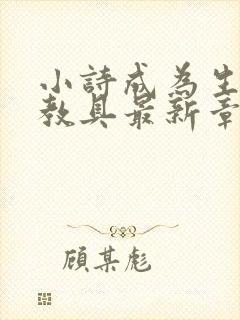 小詩成為生
教具最新章
顧某彪